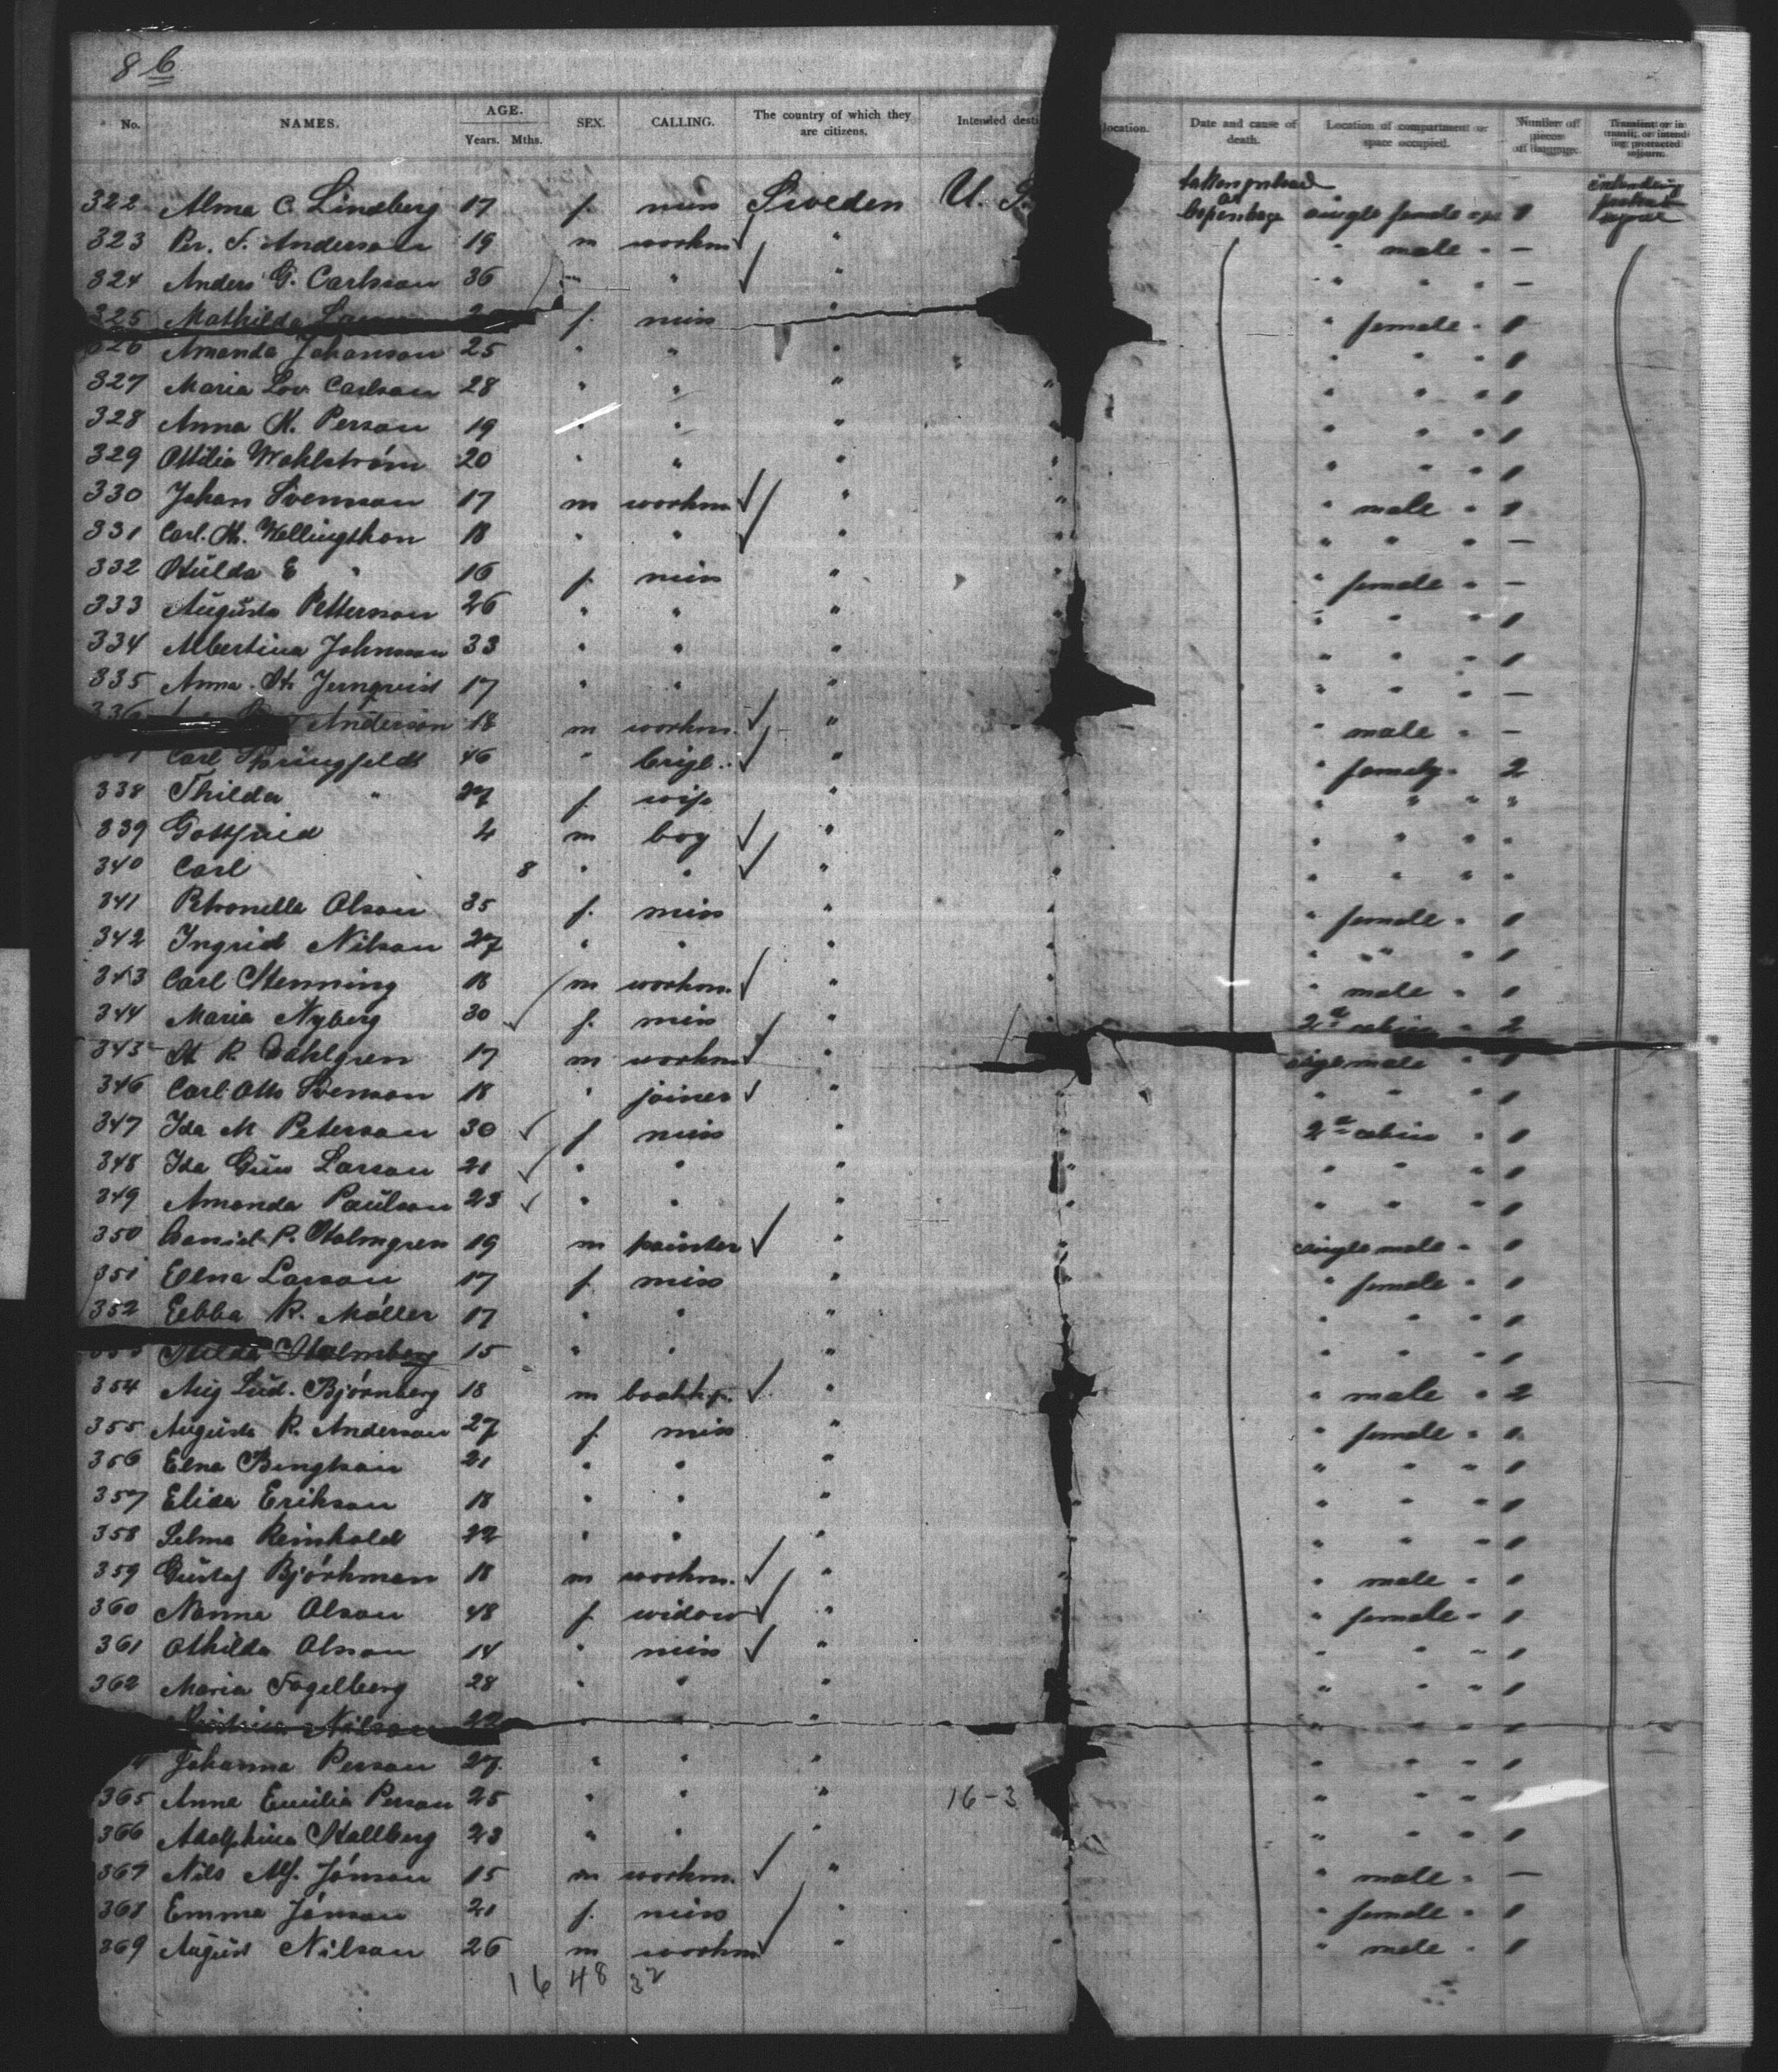 8 b
No. NAMES. AGE. Years. Mths. SEX. CALLING. The country of which they are citizens. Intended desti location. Date and cause of death. Location of compartment or space occupied. Number of pieces of baggage. Transient or in transit, or intending protracted sojourn.
322 Alma C. Lindberg 17 f. miss Sweden U. S. Copenhage single female 1
323 Pr. S. Anderson 19 m workm " " male " —
324 Anders G. Carlson 36 " " " " " —
325 Mathilda f. miss " " female " 1
326 Amanda Johanson 25 " " " " " " 1
327 Maria Lov. Carlson 28 " " " " " " " 1
328 Anna M. Person 19 " " " " " " " 1
329 Ottilia Wahlström 20 " " " " " " " 1
330 Johan Svensson 17 m workm " " " male " 1
331 Carl. M. Wellingthon 18 " " " " " " " —
332 Hulda E " 16 f. miss " " " female " —
333 Augusta Petterson 26 " " " " " " 1
334 Albertina Johnsson 33 " " " " " " 1
335 Anna H. Jernqvist 17 " " " " " " —
336 Anderson 18 m workm. " " male " —
Carl Springfeldt 46 " " " family 2
338 Thilda " 27 f. wife " " " " " "
339 Gottfried 4 m boy " " " " " "
340 Carl 8 " " " " " " " "
341 Petronella Olson 35 f. miss " " " female " 1
342 Ingrid Nilson 27 " " " " " " " 1
343 Carl Henning 18 m workm. " " " male " 1
344 Maria Nyberg 30 f. miss " 2d cabin " 2
345 H R Dahlgren 17 m workm " single male " 1
346 Carl Otto Svenson 18 " joiner " " " " 1
347 Ida M Peterson 30 f miss " " 2d cabin " 1
348 Ida Gus Larson 21 " " " " " " " 1
349 Amanda Paulson 23 " " " " " " " 1
350 Daniel P. Holmgren 19 m painter " " single male " 1
351 Elna Larson 17 f. miss " " " female " 1
352 Ebba R. Möller 17 " " " " " " 1
Holmberg 15 " " " " " 1
354 Aug Lud. Björnberg 18 m bookkp. " " male " 2
355 Augusta R. Anderson 27 f. miss " " female " 1
356 Elna Bengtson 21 " " " " " " 1
357 Elida Erikson 18 " " " " " " " 1
358 Selma Reinhold 22 " " " " " " 1
359 Gustaf Björkman 18 m workm. " " " male " 1
360 Nanna Olson 48 f. widow " " " female " 1
361 Othilda Olsson 14 " miss " " " " 1
362 Maria Fogelberg 28 " " " " " " 1
Nilson 22 " " " " " " 1
Johanna Person 27 " " " " " " 1
365 Anna Emilia Person 25 " " " 16-3 " " "
366 Adolphina Hallberg 23 " " " " " " 1
367 Nils Alf. Jönson 15 m workm. " " male " —
368 Emma Jönson 21 f. miss " " " female " 1
369 August Nilson 26 m workm " " " male " 1
16 48 32